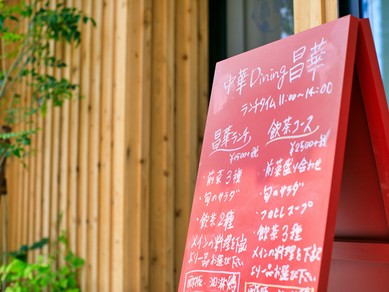 中華Dining昌華
ランチタイム 11:00〜14:00
昌華ランチ
¥1500+税
・前菜3種
・旬のサラダ
・飲茶2種
メインの料理を下記
より一品お選び下さい
飲茶コース
¥2500+税
・前菜盛り合わせ
・旬のサラダ
・フカヒレスープ
・飲茶3種
メインの料理を下記
より一品お選び下さい